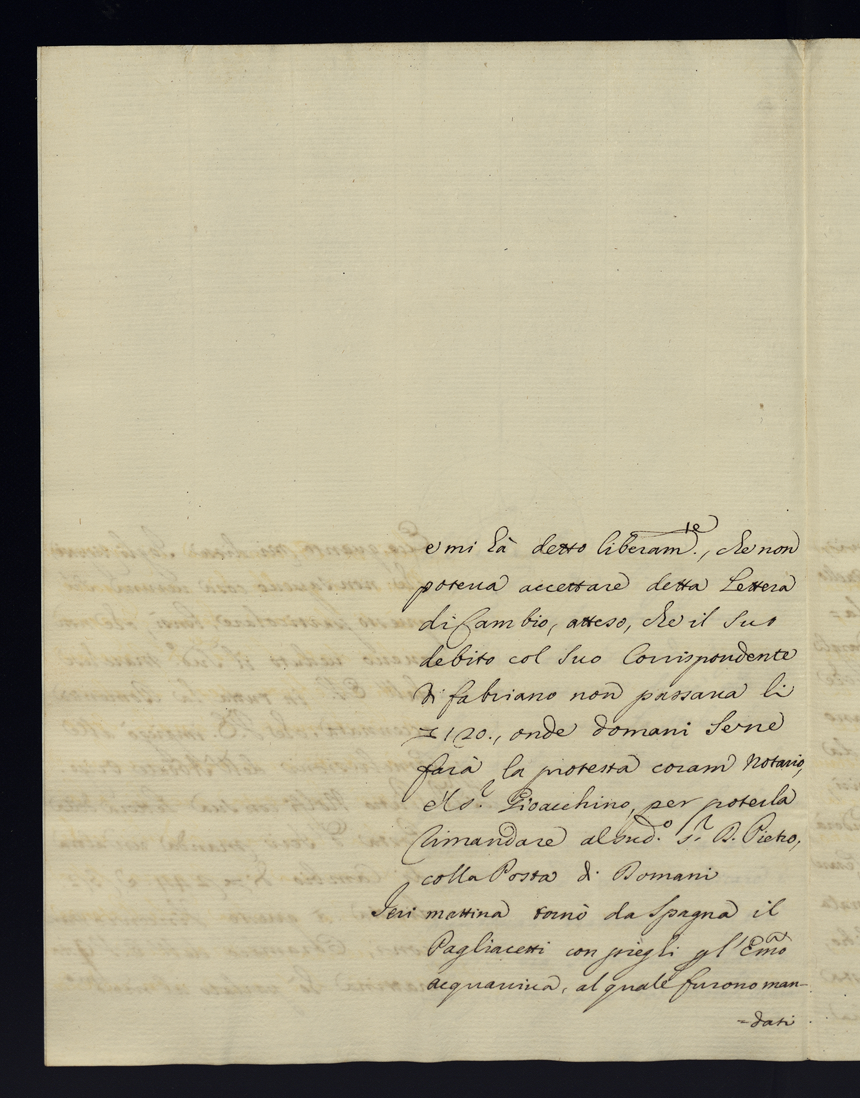 e mi hà detto liberam.te, che non
poteva accettare detta Lettera
di Cambio, atteso, che il suo
debito col suo Corrispondente
di fabriano non passava li
120., onde domani se ne
farà la protesta coram Notario,
Gioacchino, per poterla
rimandare al sud.o S.r D. Pietro,
colla Posta di Domani
Jeri mattina tornò da Spagna il
Pagliacetti con pieghi p l'Emo
acquaviva, al quale furono man-
=dati